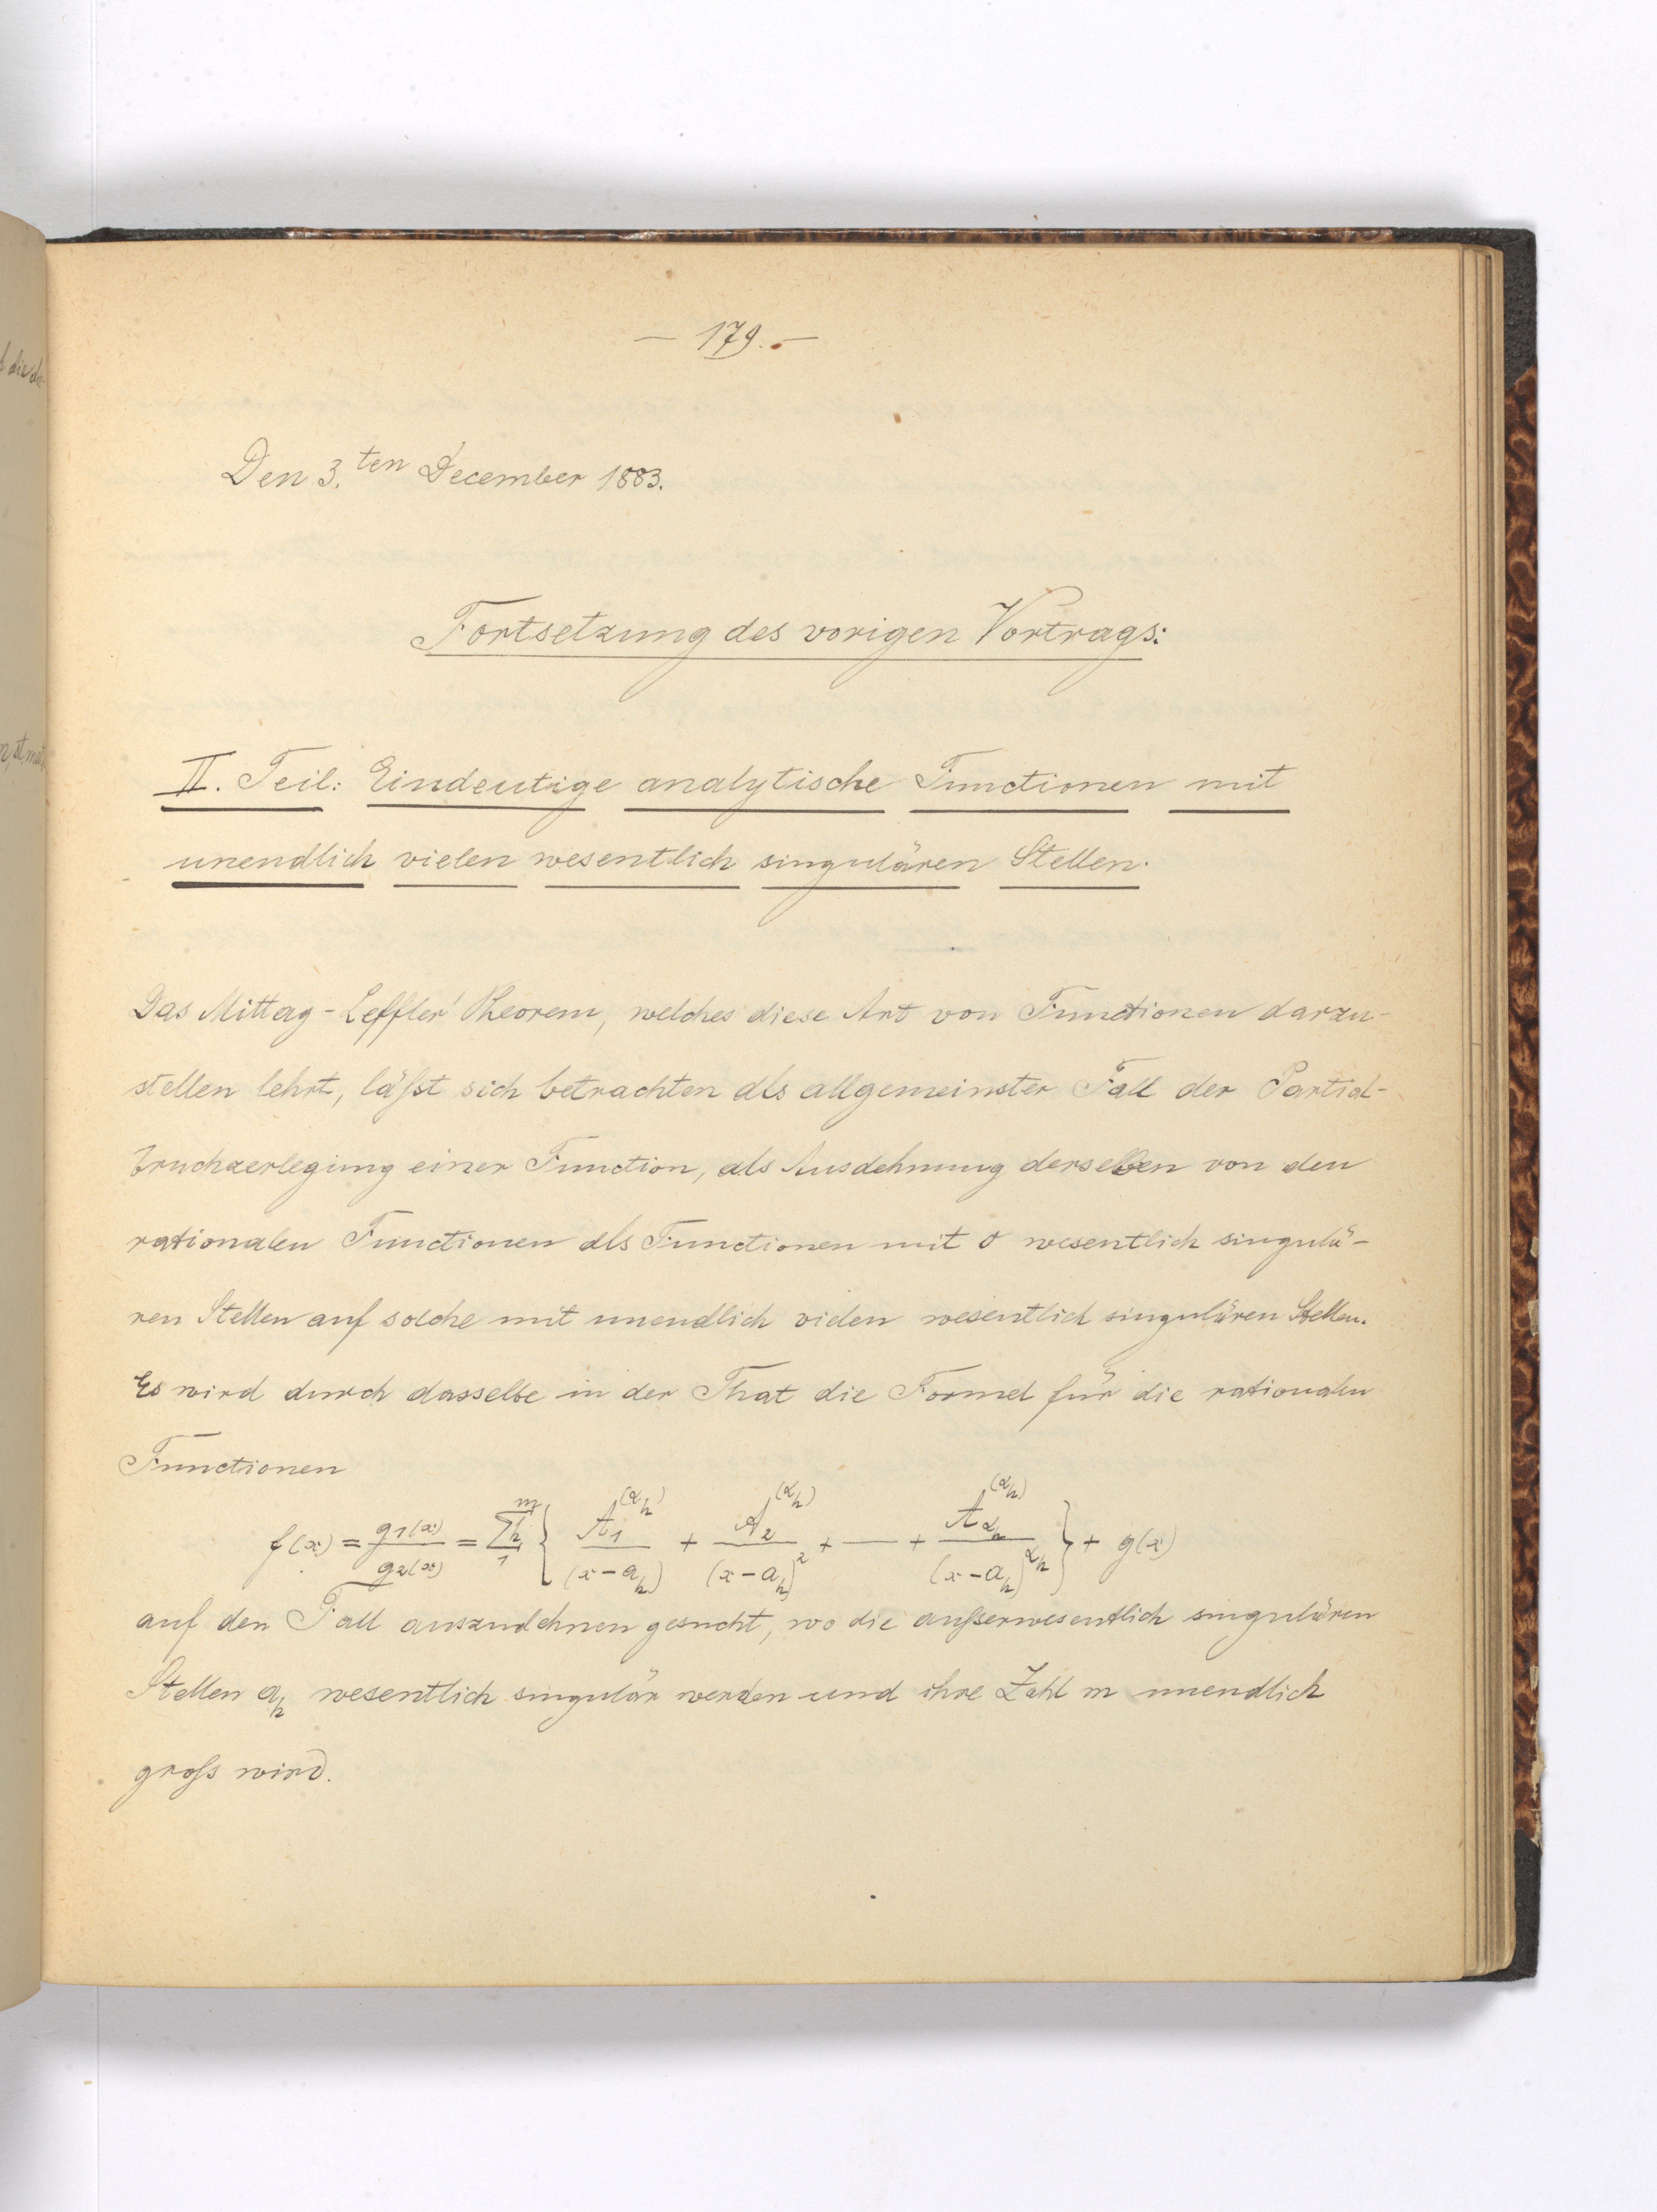 — 179. —
Den 3.ten December 1883.
Fortsetzung des vorigen Vortrags:
II. Teil: Eindeutige analytische Functionen mit
unendlich vielen wesentlich singulären Stellen.
Das Mittag-Leffler' Theorem, welches diese Art von Functionen darzu-
stellen lehrt, läßt sich betrachten als allgemeinster Fall der Partial-
bruchzerlegung einer Function, als Ausdehnung derselben von den
rationalen Functionen als Functionen mit 0 wesentlich singulä-
ren Stellen auf solche mit unendlich vielen wesentlich singulären Stellen.
Es wird durch dasselbe in der That die Formel für die rationalen
Functionen
f(x) = g₁(x)/g₂(x) = Σₕ₁ᵐ { A₁^(αₕ)/(x-aₕ) + A₂^(αₕ)/(x-aₕ)² + — + A_αₕ^(αₕ)/(x-aₕ)^αₕ } + g(x)
auf den Fall auszudehnen gesucht, wo die außerwesentlich singulären
Stellen aₕ wesentlich singulär werden und ihre Zahl m unendlich
groß wird.
die